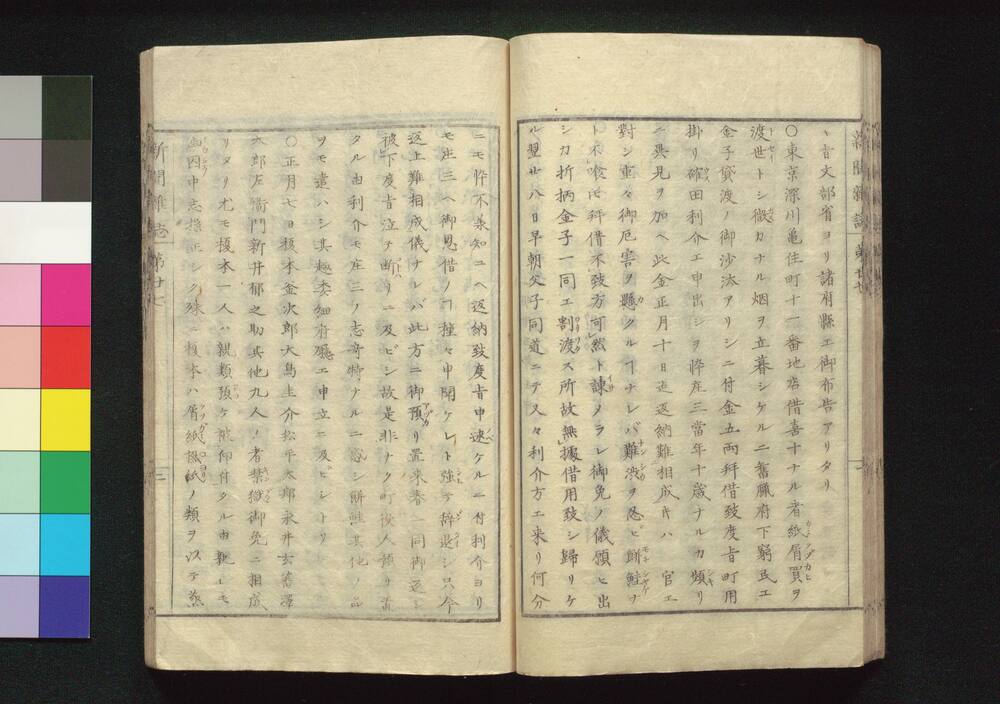 新聞雑誌 第廿七
旨文部省ヨリ諸府縣エ御布告アリタリ
〇東京深川亀住町十一番地店借喜十ナル者紙屑買ヲ
渡世トシ微カナル烟ヲ立暮シケルニ舊臘府下窮民エ
金子貸渡ノ御沙汰アリシニ付金五両拜借致度旨町用
掛リ確田利介エ申出シヲ悴庄三當年十歳ナルカ頻リ
ニ異見ヲ加ヘ此金正月十日迄返納難相成キハ 官エ
對シ重々御厄害ヲ懸クルヿナレバ難渋ヲ忍ビ餅鮭ヲ
ト不喰㐧拜借不致方可然ト諫メラレ御免ノ儀願ヒ出
シカ折柄金子一同エ割渡ス所故無據借用致シ歸リケ
ル翌廿八日早朝父子同道ニテ又々利介方エ来リ何分
ニモ悴不承知ユヘ返納致度旨申述ケルニ付利介ヨリ
モ庄三ヘ御恩借ノヿ種々申聞ケレト強テ辞退シ只今
返上難相成儀ナレバ此方ニ御預リ置来春一同御返シ
被下度旨泣テ断リニ及ビシ故是非ナク町役人預リ置
タル由利介モ庄三ノ志奇特ナルニ感シ餅鮭其他ノ品
ヲモ遣ハシ其趣委細府廳エ申立ニ及ビシトソ
〇正月七日榎本釜次郎大鳥圭介松平太郎永井玄蕃澤
太郎左衛門新井郁之助其他九人ノ者禁獄御免ニ相成
リタリ尤モ榎本一人ハ親類預ケ被仰付タル由孰レモ
幽囚中志操正シク殊ニ榎本ハ屑紙機紙ノ類ヲ以テ蒸
新聞雑志 第廿七 三